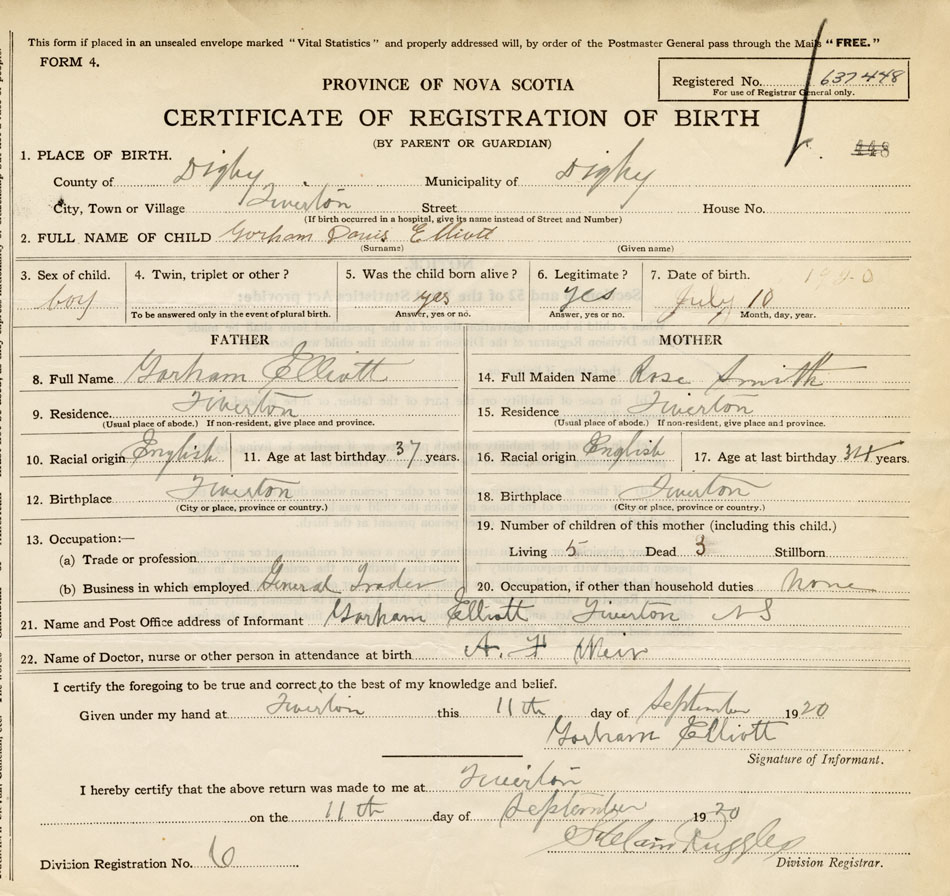 This form if placed in an unsealed envelope marked "Vital Statistics" and properly addressed will, by order of the Postmaster General pass through the Mails "FREE."
FORM 4.
PROVINCE OF NOVA SCOTIA
Registered No. 637448
For use of Registrar General only.
CERTIFICATE OF REGISTRATION OF BIRTH
(BY PARENT OR GUARDIAN)
448
1. PLACE OF BIRTH.
County of Digby Municipality of Digby
City, Town or Village Tiverton Street House No.
(If birth occurred in a hospital, give its name instead of Street and Number)
2. FULL NAME OF CHILD Gorham Davis Elliott
(Surname) (Given name)
3. Sex of child. 4. Twin, triplet or other? 5. Was the child born alive? 6. Legitimate? 7. Date of birth. 1920
boy yes yes July 10
To be answered only in the event of plural birth. Answer, yes or no. Answer, yes or no. Month, day, year.
FATHER MOTHER
8. Full Name Gorham Elliott 14. Full Maiden Name Rose Smith
9. Residence. Tiverton 15. Residence Tiverton
(Usual place of abode.) If non-resident, give place and province. (Usual place of abode.) If non-resident, give place and province.
10. Racial origin English 11. Age at last birthday 37 years. 16. Racial origin English 17. Age at last birthday 34 years.
12. Birthplace Tiverton 18. Birthplace Tiverton
(City or place, province or country.) (City or place, province or country.)
13. Occupation:— 19. Number of children of this mother (including this child.)
(a) Trade or profession Living 5 Dead 3 Stillborn
(b) Business in which employed General Trader 20. Occupation, if other than household duties None
21. Name and Post Office address of Informant Gorham Elliott Tiverton N S
22. Name of Doctor, nurse or other person in attendance at birth A. F Weir
I certify the foregoing to be true and correct to the best of my knowledge and belief.
Given under my hand at Tiverton this 11th day of September 1920
Gorham Elliott
Signature of Informant.
I hereby certify that the above return was made to me at Tiverton
on the 11th day of September 1920
Ruggles
Division Registration No. 6 Division Registrar.